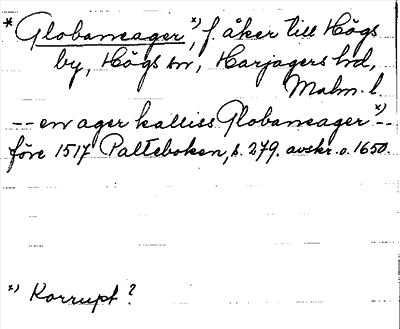 * Globaneager *), f. åker till Högs
by, Högs sn, Harjagers hd,
Malm. l.
-- en ager kalliss Globaneager *) --
före 1517 Palteboken, s. 279. avskr. o. 1650.
*) Korrupt?